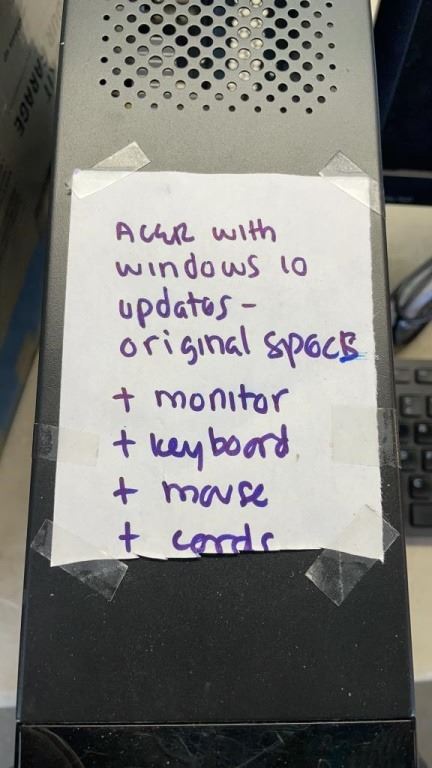 GARAGE
Acer with
windows 10
updates -
original specs
+ monitor
+ keyboard
+ mouse
+ cords